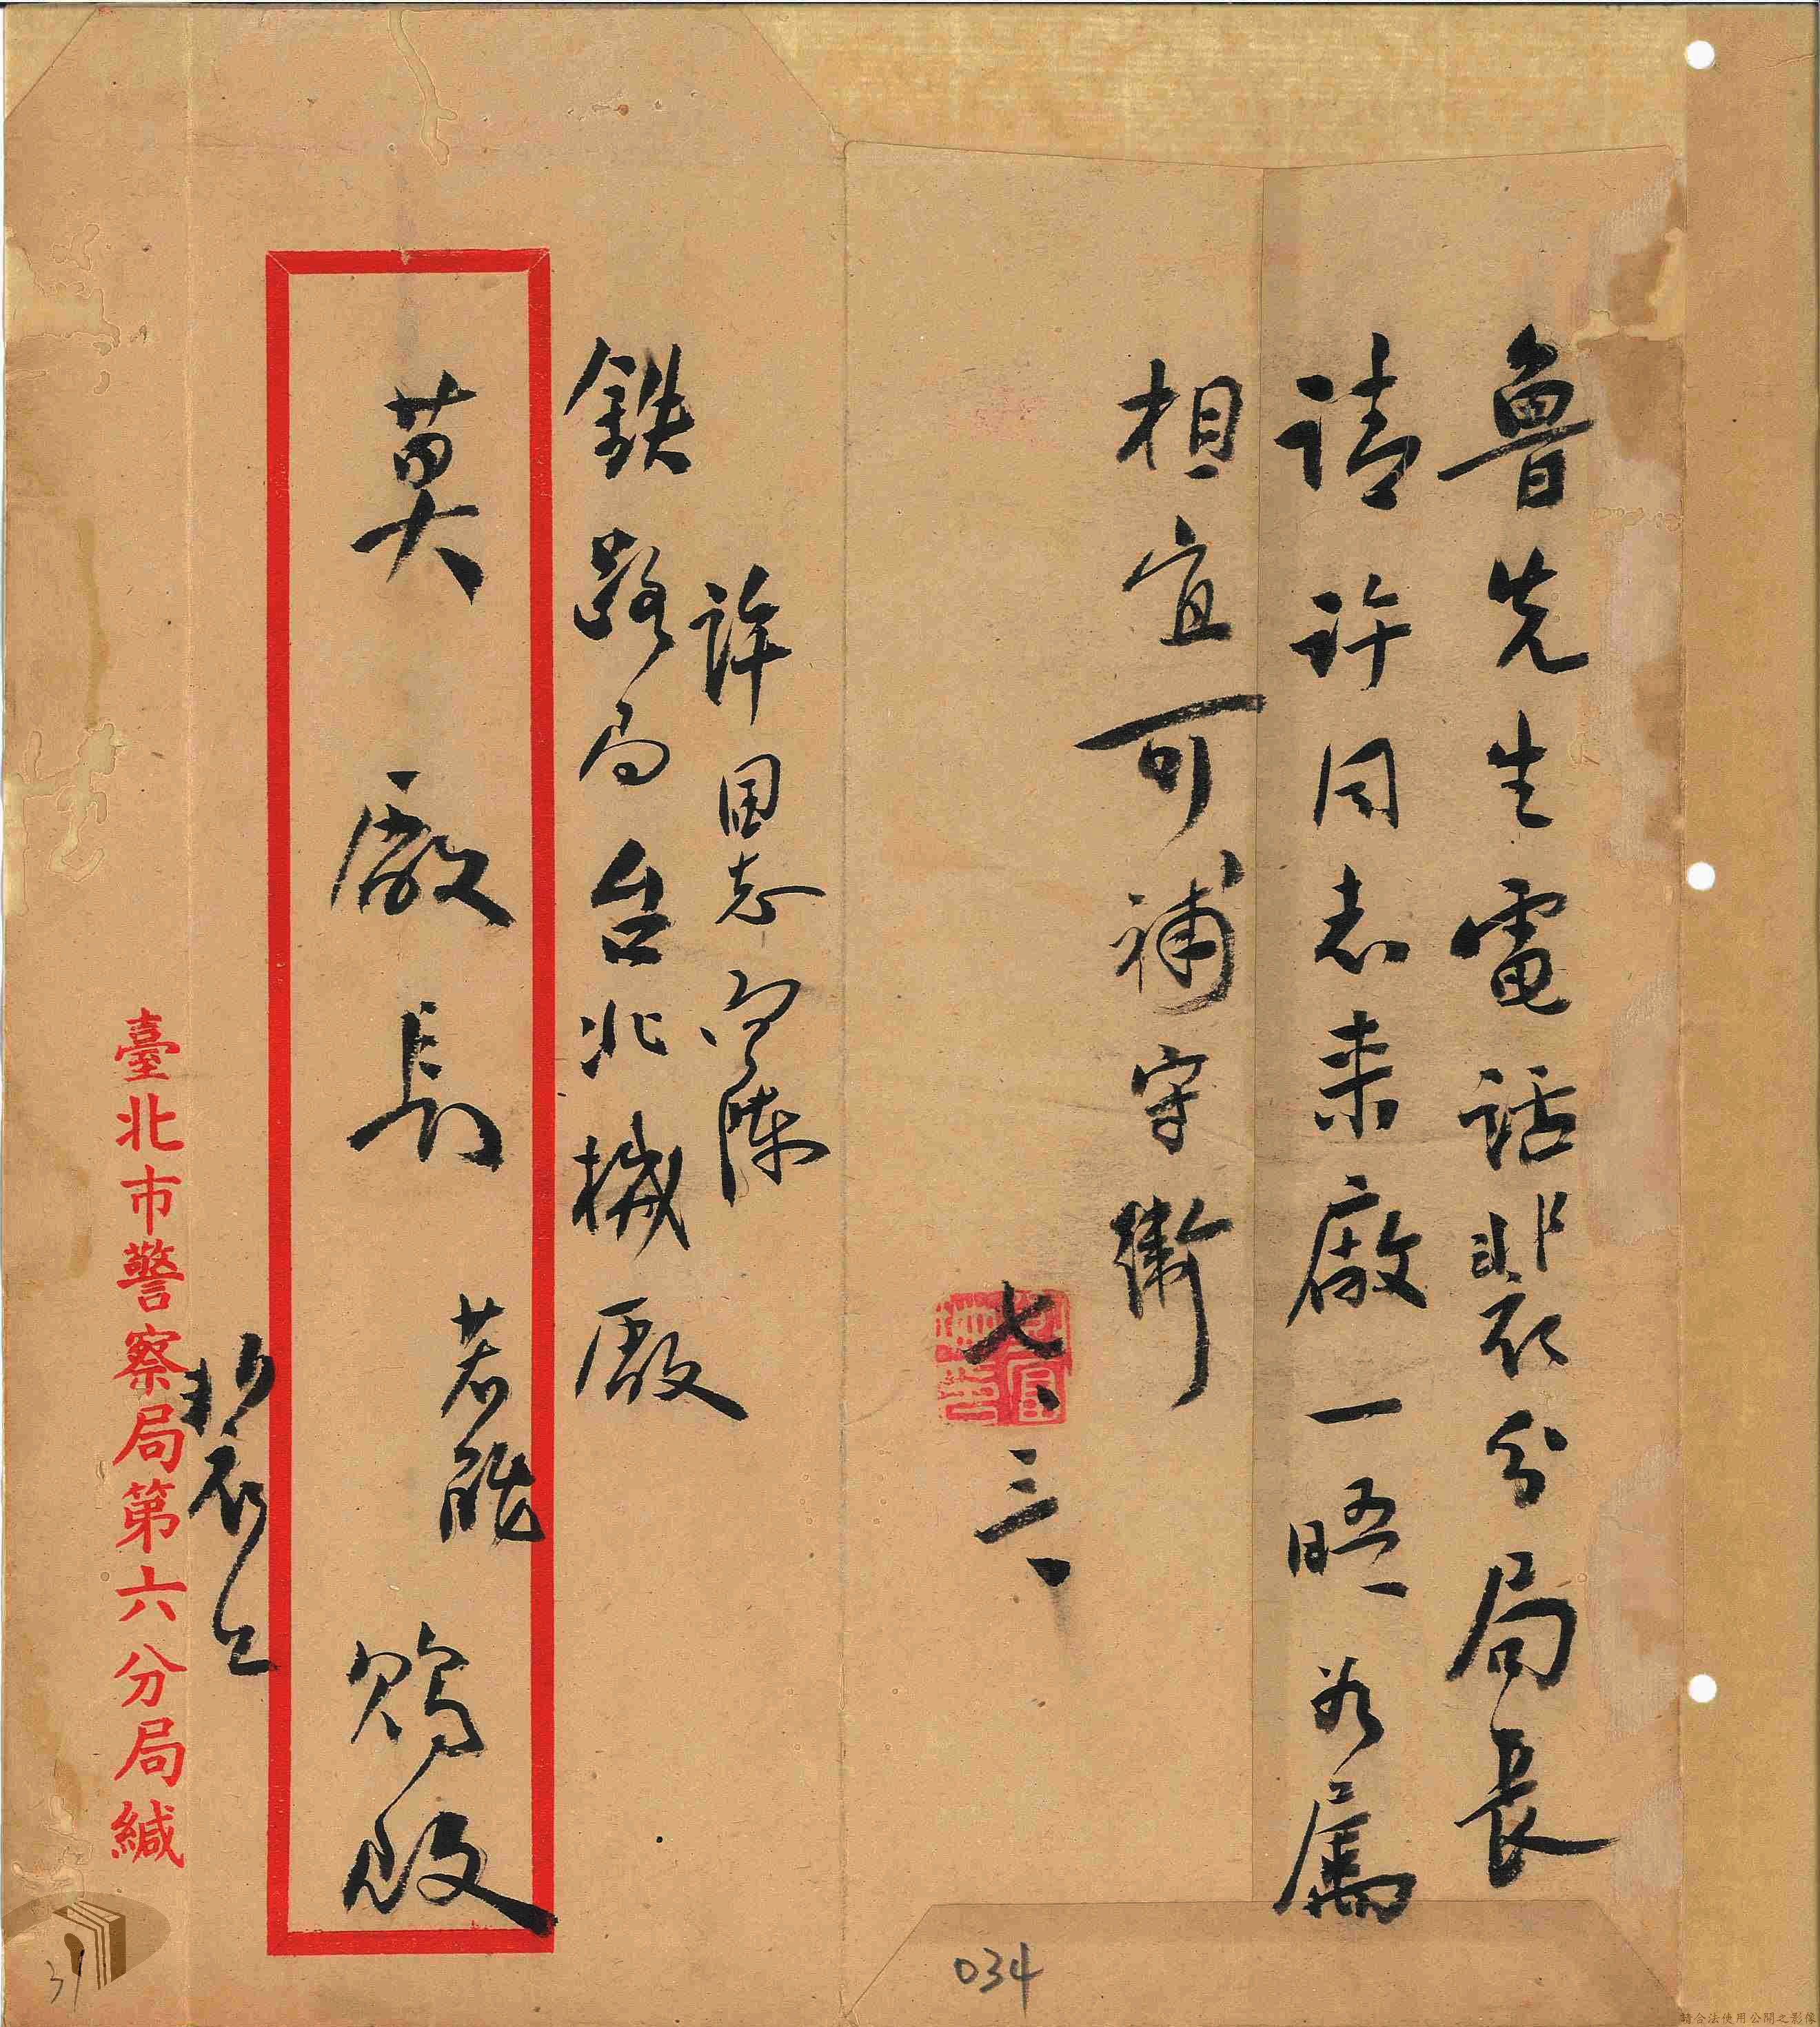 魯先生電話裴分局長
請許同志来廠一晤如屬
相宜可補守衛
七、三、
許同志面陳
鉄路局台北機廠
莫廠長 若能 賜啟
裴
臺北市警察局第六分局緘
034
31
請合法使用公開之影像